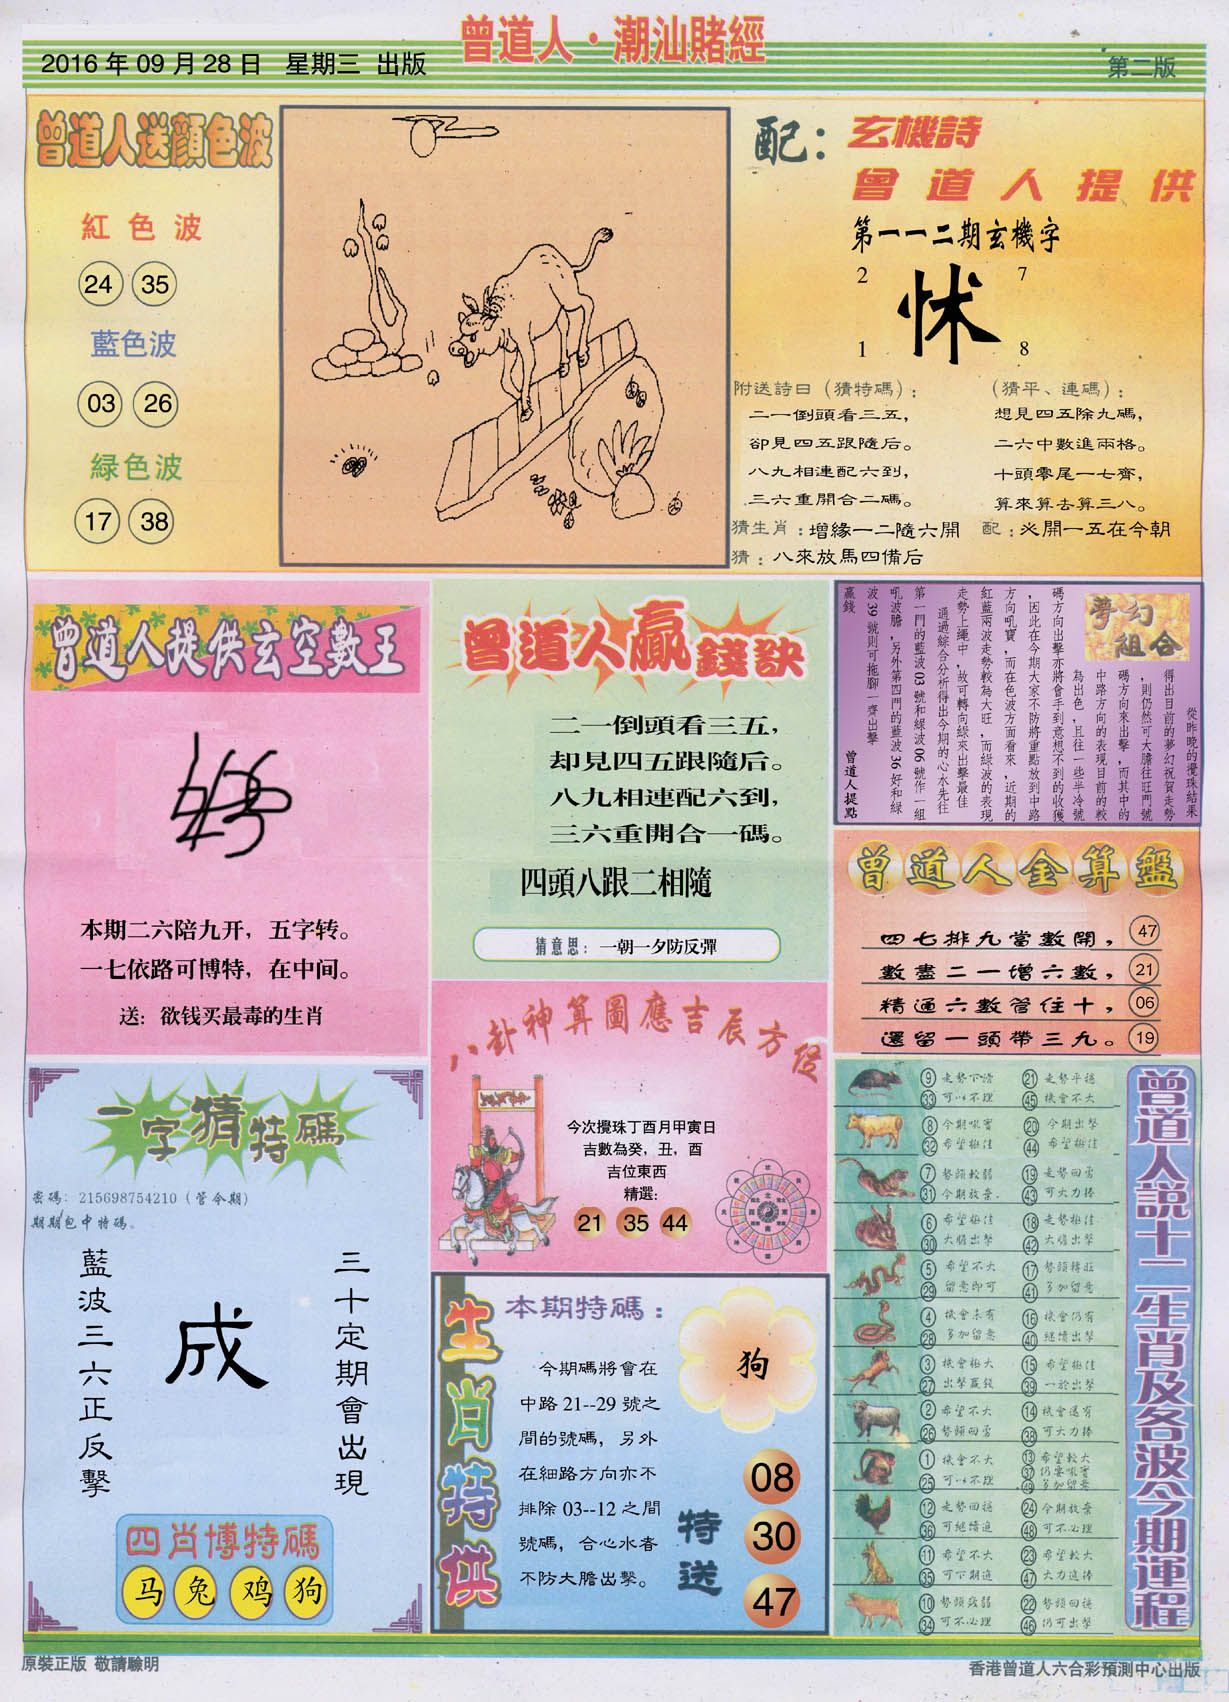 曾道人·潮汕賭經
2016 年 09 月 28 日 星期三 出版
第二版
曾道人送顏色波
紅色波
24 35
藍色波
03 26
緑色波
17 38
配：
玄機詩
曾道人提供
第一一二期玄機字
2 7
怵
1 8
附送詩曰（猜特碼）：
二一倒頭看三五，
卻見四五跟隨后。
八九相連配六到，
三六重開合二碼。
（猜平、連碼）：
想見四五除九碼，
二六中數進兩格。
十頭零尾一七齊，
算來算去算三八。
猜生肖：增緣一二隨六開
配：必開一五在今朝
猜：八來放馬四備后
曾道人提供玄空數王
本期二六陪九开，五字转。
一七依路可博特，在中间。
送：欲钱买最毒的生肖
曾道人贏錢訣
二一倒頭看三五，
却見四五跟隨后。
八九相連配六到，
三六重開合一碼。
四頭八跟二相隨
猜意思：一朝一夕防反彈
夢幻組合
從昨晚的攪珠結果
得出目前的夢幻祝賀走勢
，則仍然可大膽往旺門號
碼方向來出擊，而其中的
中路方向的表現目前的較
為出色，且往一些半冷號
碼方向出擊亦將會手到意想不到的收獲
，因此在今期大家不防將重點放到中路
方向吼寶，而在色波方面看來，近期的
紅藍兩波走勢較為大旺，而綠波的表現
走勢上繩中，故可轉向綠來出擊最佳
通過綜合分析得出今期的心水先往
第一門的藍波03號和綠波06號作一組
吼波膽，另外第四門的藍波36好和綠
波39號則可拖腳一齊出擊
贏錢
曾道人提點
曾道人金算盤
四七排九當數開， 47
數盡二一增六數， 21
精通六數管住十， 06
還留一頭帶三九。 19
一字猜特碼
密碼：215698754210（管今期）
期期包中特碼。
三十定期會出現
成
藍波三六正反擊
四肖博特碼
马 兔 鸡 狗
八卦神算圖應吉辰方位
今次攪珠丁酉月甲寅日
吉數為癸，丑，酉
吉位東西
精選：
21 35 44
生肖特供
本期特碼：
今期碼將會在
中路 21--29 號之
間的號碼，另外
在細路方向亦不
排除 03--12 之間
號碼，合心水者
不防大膽出擊。
狗
特送
08
30
47
曾道人説十二生肖及各波今期運程
⑨ 走勢下滑 ㉑ 走勢平穩
㉝ 可以不理 ㊺ 機會不大
⑧ 今期吼寶 ⑳ 今期出擊
㉜ 希望極佳 ㊹ 希望極佳
⑦ 勢頭較弱 ⑲ 走勢回勇
㉛ 今期放棄 ㊸ 可大力捧
⑥ 希望極佳 ⑱ 走勢極佳
㉚ 大膽出擊 ㊷ 大膽出擊
⑤ 希望不大 ⑰ 勢頭轉旺
㉙ 留意即可 ㊶ 多加留意
④ 機會未有 ⑯ 機會仍有
㉘ 多加留意 ㊵ 繼續出擊
③ 機會極大 ⑮ 希望極佳
㉗ 出擊贏錢 ㊴ 一於出擊
② 希望不大 ⑭ 機會還有
㉖ 勢頭回勇 ㊳ 可大力捧
① 機會不大 ⑬ 希望較大
㊲ 仍要吼實
㉕ 可以不理 ㊾ 多加留意
⑫ 走勢回穩 ㉔ 今期放棄
㊱ 可繼續追 ㊽ 可不必理
⑪ 希望不大 ㉓ 希望較大
㉟ 可下期追 ㊼ 大力追捧
⑩ 勢頭疲弱 ㉒ 勢頭回穩
㉞ 可不必理 ㊻ 仍可出擊
原裝正版 敬請驗明
香港曾道人六合彩預測中心出版